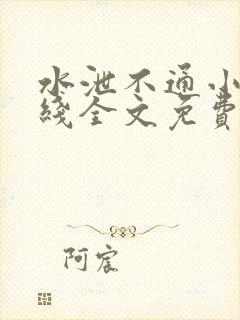 水泄不通小
线全文免費
阿宸